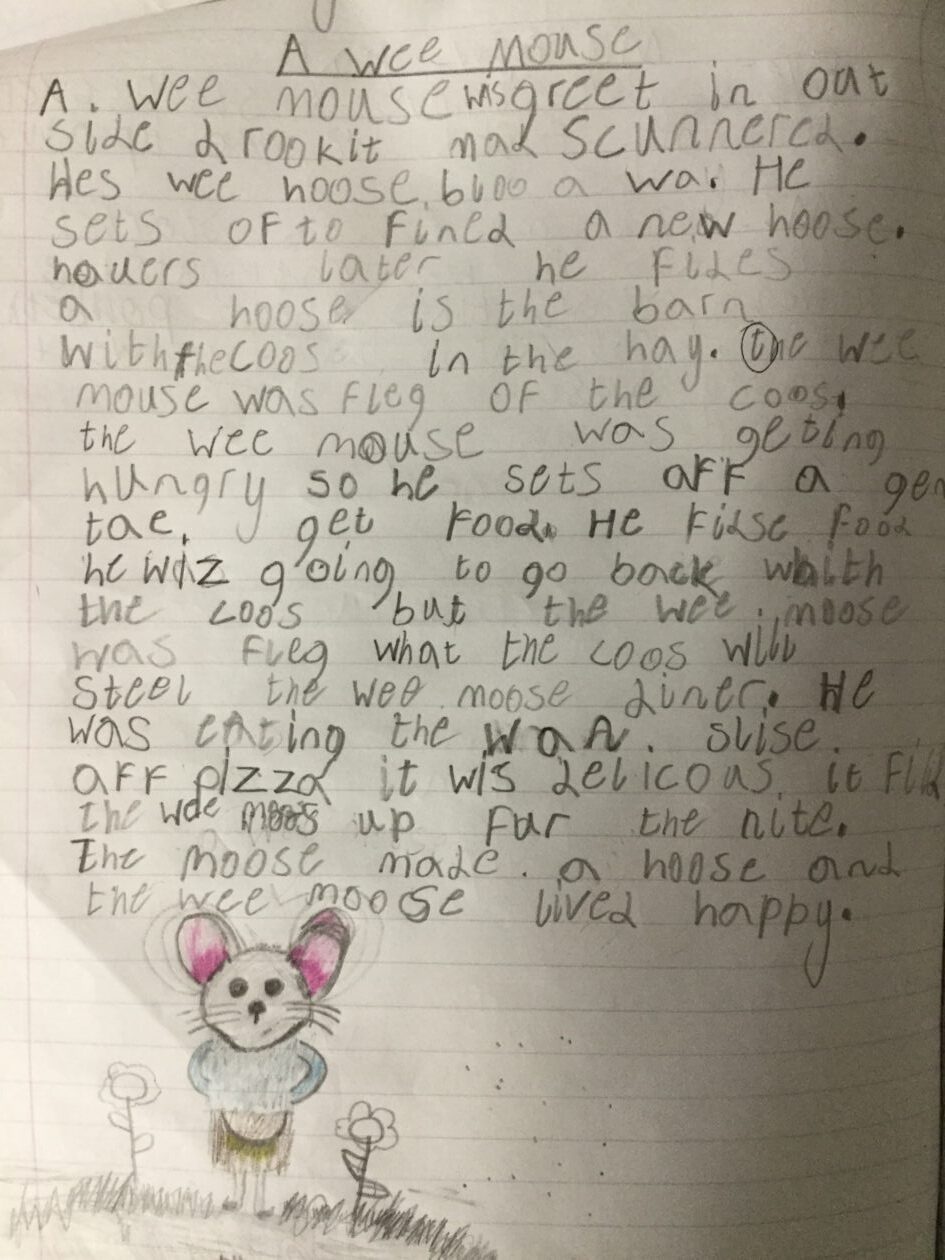 A wee mouse
A. wee mouse wis greet in out
side drookit mad scunnered.
Hes wee hoose bloo a wa. He
sets of to fined a new hoose.
houers later he fides
a hoose is the barn
with the coos in the hay. the wee
mouse was fleg of the coos.
the wee mouse was geting
hungry so he sets aff a gen
tae, get food. He fidse food
he wiz going to go back whith
the coos but the wee moose
was fleg what the coos will
steel the wee moose diner. He
was eating the waa. slise.
aff pizza it wis delicous, it filld
the wee moos up fur the nite.
The moose made. a hoose and
the wee moose lived happy.